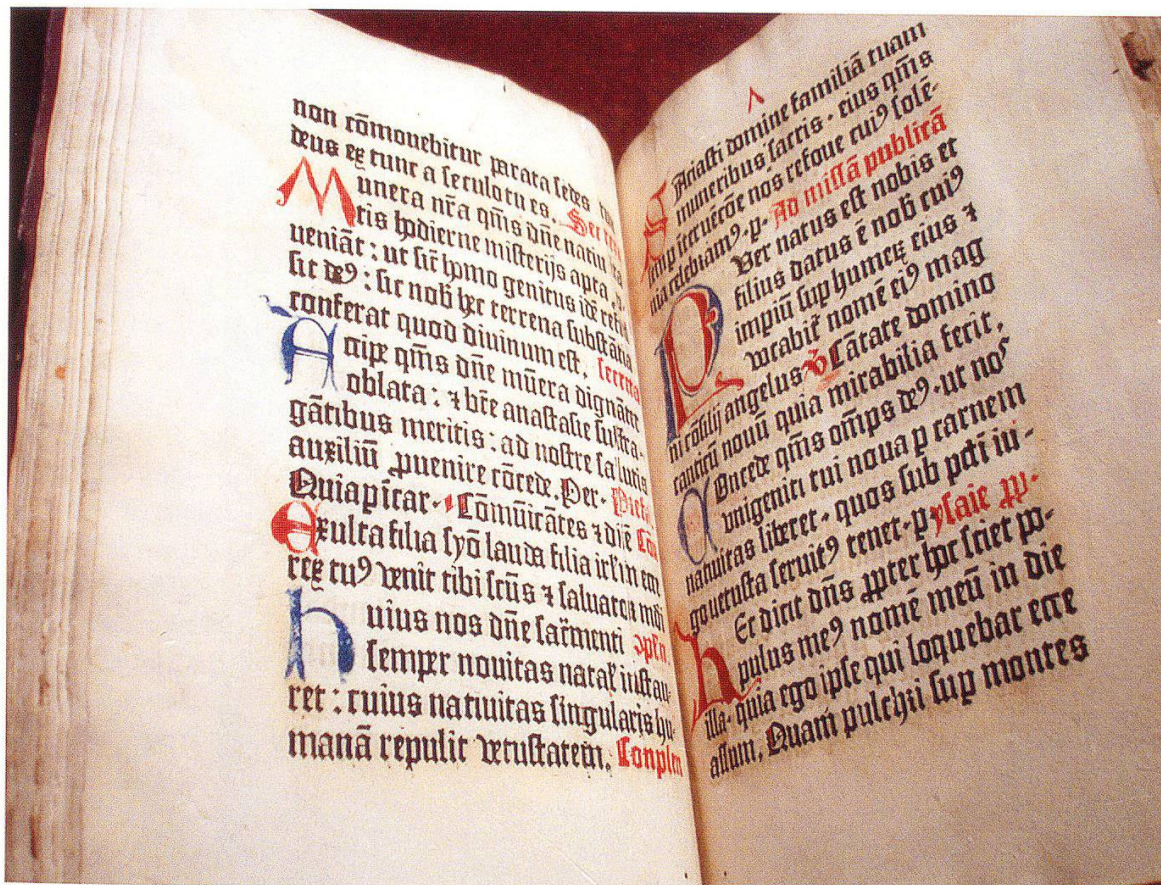 non cōmovebitur parata sedes
deus ex tunc a seculo tu es. Secreta
Munera nr̄a qm̄s dn̄e nativita
tis hodierne misterijs apta p̱
veniāt: ut sic̄ homo genitus idē
sit deꝰ: sic nob̄ hec terrena substācia
conferat quod divinum est. secreta
Accipe qm̄s dn̄e mūera dignāter
oblata: ⁊ bt̄e anastasie suffra-
gātibus meritis: ad nostre salutis
auxiliū ꝓvenire cōcede. Per.
Quia p icar. Cōmūicātes ⁊ diē Cōō
Exulta filia syō lauda filia irl̄m ecce
rex tuꝰ venit tibi scūs ⁊ salvator mūdi
huius nos dn̄e sacr̄menti ↄplen.
semper novitas natal̄ instau-
ret: cuius nativitas singularis hu-
manā repulit vetustatem. Conplen
Saciasti domine familiā tuam
muneribus sacris. eius qm̄s
semp̱ iterv̄cōe nos refove cuiꝰ solē-
nia celebramꝰ. p. Ad missā publicā
Puer natus est nobis et
filius datus ē nob̄ cuiꝰ
impiū sup̱ humerꝫ eius ⁊
vocabit̄ nomē eiꝰ mag
ni cōsilij angelus ꝟ Cātate domino
canticū novū quia mirabilia fecit.
Concede qm̄s om̄ps deꝰ. ut noˢ
unigeniti tui nova p̱ carnem
nativitas liberet. quos sub pcti iu-
go vetusta servitꝰ tenet. p ysaie ꝓp.
hEc dicit dn̄s ꝓpter hoc sciet po-
pulus meꝰ nomē meū in die
illa. quia ego ipse qui loquebar ecce
assum. Quam pulchri sup̱ montes